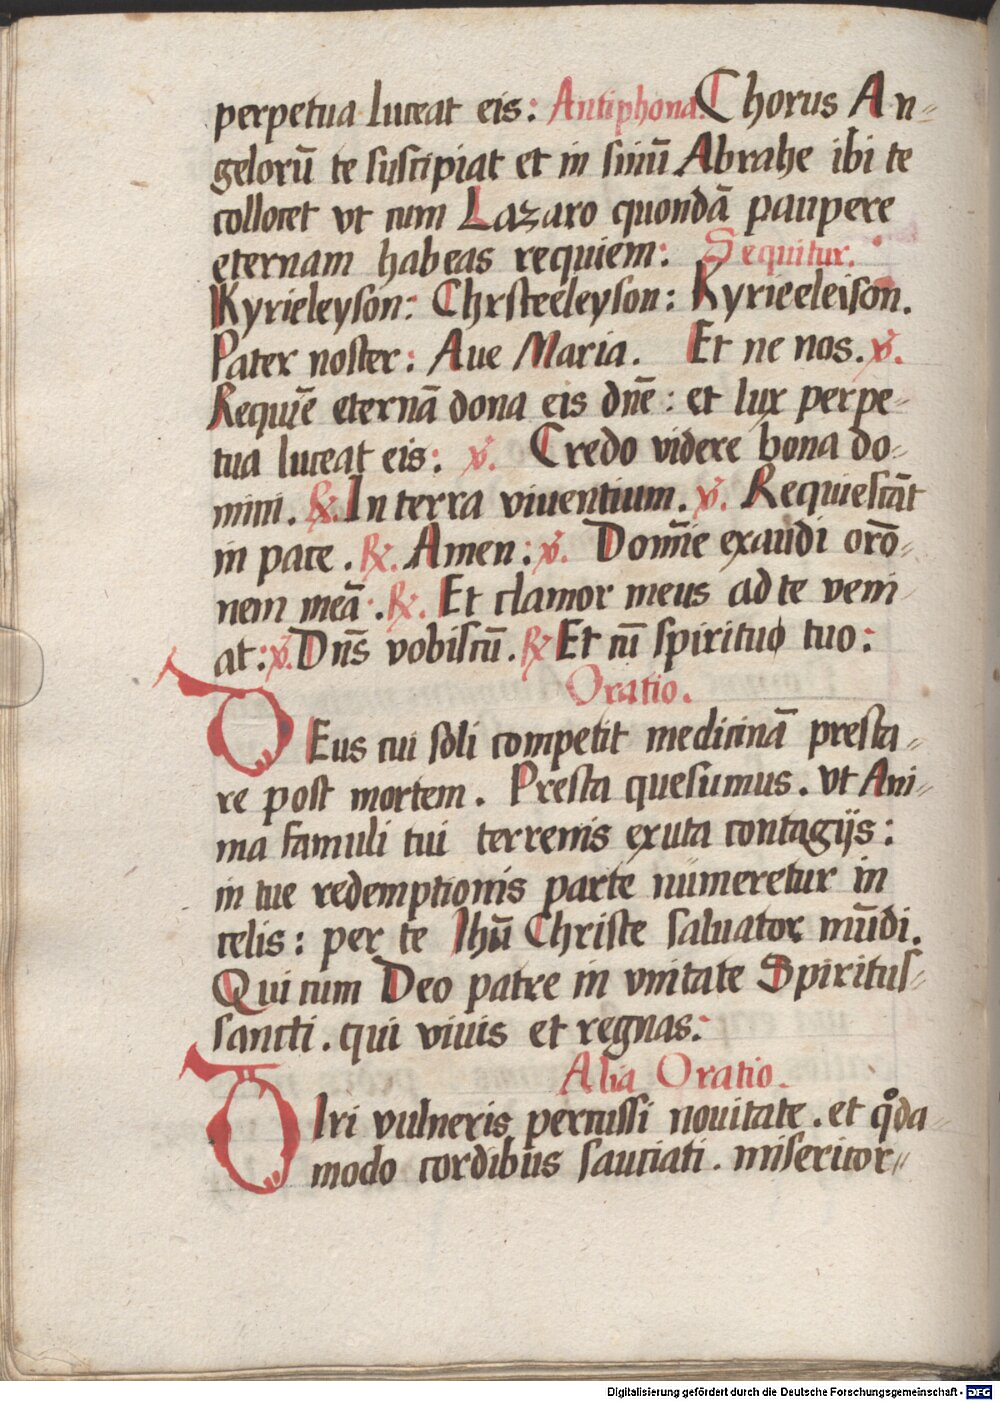 perpetua luceat eis: Antiphona. Chorus An-
gelorū te suscipiat et in sinū Abrahe ibi te
collocet vt cum Lazaro quondā paupere
eternam habeas requiem: Sequitur.
Kyrieleyson: Chrsteeleyson: Kyrieeleison.
Pater noster: Aue Maria. Et ne nos. ℣.
Requiē eternā dona eis dn̄e: et lux perpe-
tua luceat eis: ℣. Credo videre bona do-
mini. ℟. In terra viuentium. ℣. Requiescāt
in pace. ℟. Amen: ℣. Domīe exaudi orō-
nem meā. ℟. Et clamor meus ad te veni
at: ℣. Dn̄s vobiscū. ℟ Et cū spirituo tuo:
Oratio.
DEus cui soli competit medicinā presta-
re post mortem. Presta quesumus. vt Ani-
ma famuli tui terrenis exuta contagijs:
in tue redemptionis parte numeretur in
celis: per te Ihū Christe saluator mūdi.
Qui cum Deo patre in vnitate Spiritus-
sancti. qui viuis et regnas:
Alia Oratio.
DIri vulneris percussi nouitate. et qͦda-
modo cordibus sauciati. misericor-
Digitalisierung gefördert durch die Deutsche Forschungsgemeinschaft - DFG